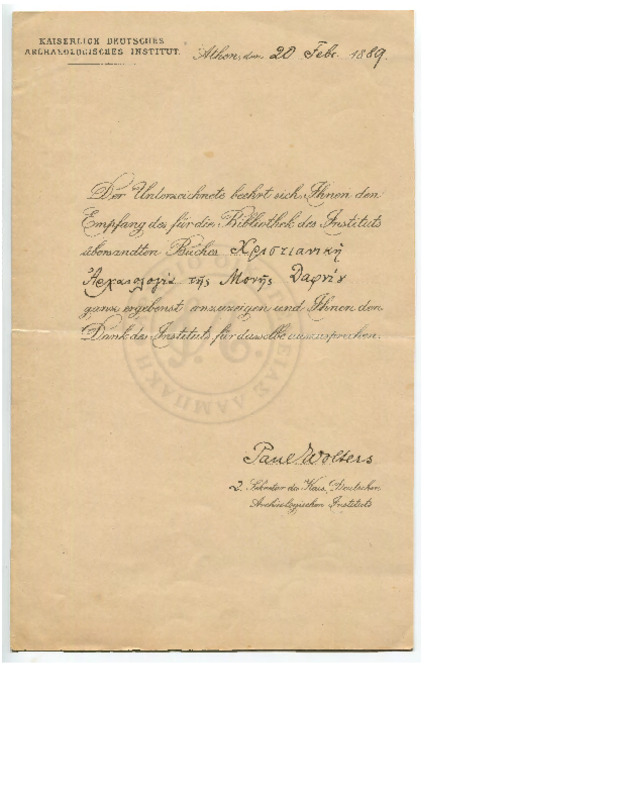 KAISERLICH DEUTSCHES
ARCHAEOLOGISCHES INSTITUT.
Athen, den 20 Febr. 1889.
Der Unterzeichnete beehrt sich Ihnen den
Empfang des für die Bibliothek des Instituts
übersandten Buches Χριστιανικὴ
Ἀρχαιολογία τῆς Μονῆς Δαφνίυ
ganz ergebenst anzuzeigen und Ihnen den
Dank des Instituts für dasselbe auszusprechen.
ΛΑΜΠΑΚΗ
Paul Wolters
2. Sekretar des Kais. Deutschen
Archäologischen Instituts